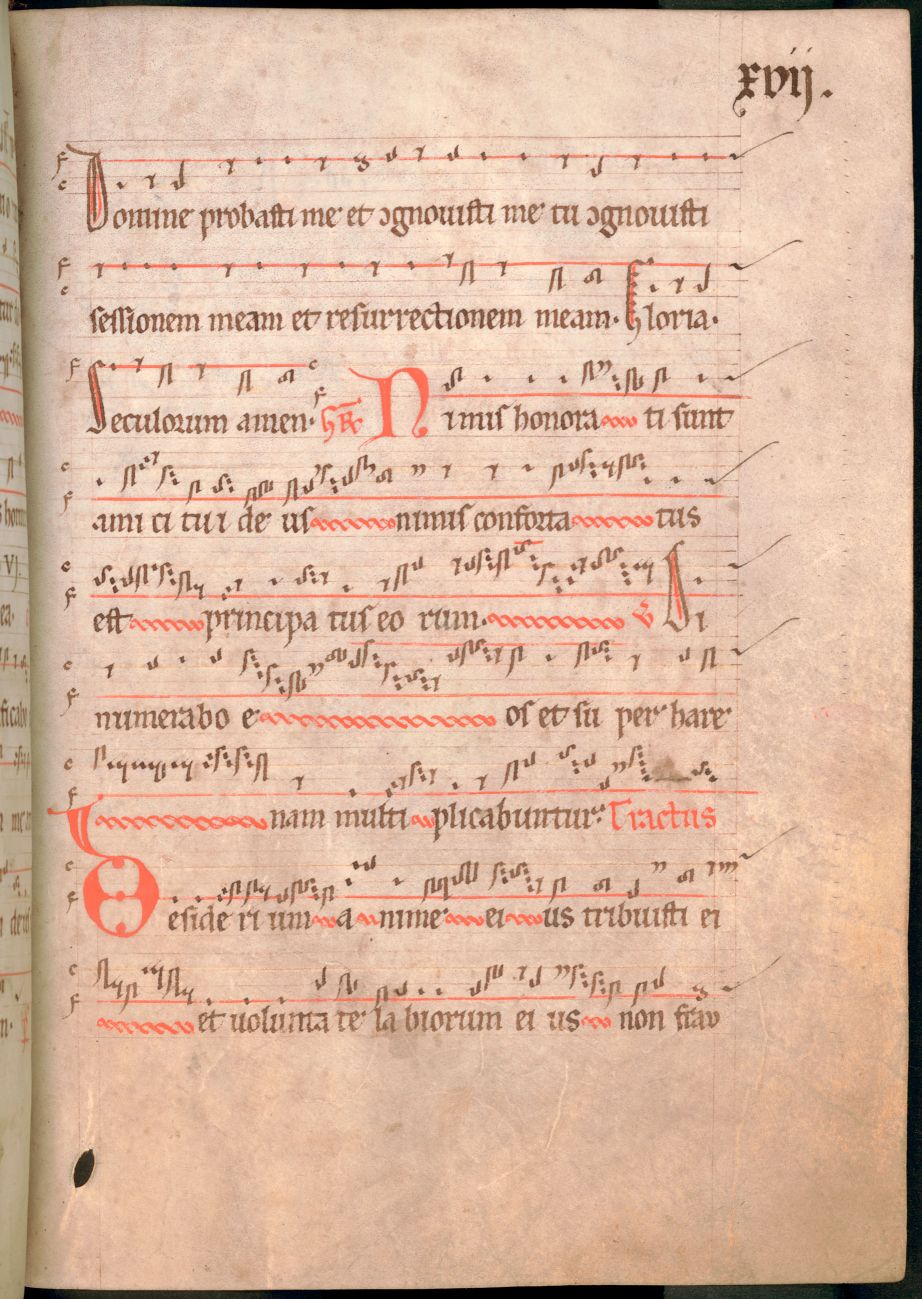 xvij.
Domine probasti me et ɔgnouisti me tu ɔgnouisti
sessionem meam et resurrectionem meam. Gloria.
Seculorum amen. GR Nimis honora ti sunt
ami ci tu i de us nimis conforta tus
est principa tus eo rum. V Di
numerabo e os et su per hare
nam multi plicabuntur. Tractus
Deside ri um a nime ei us tribuisti ei
et uolunta te la biorum ei us non frau